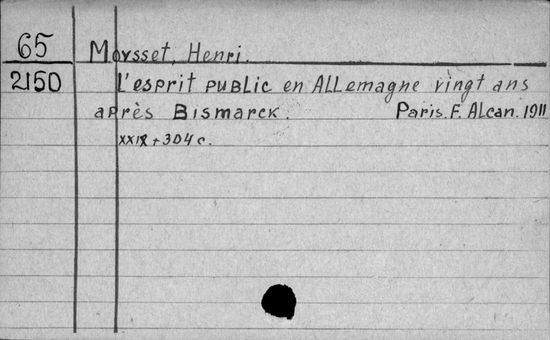 65
Moysset, Henri.
2150
L'esprit public en Allemagne vingt ans
après Bismarck. Paris. F. Alcan. 1911
XXIX + 304 c.